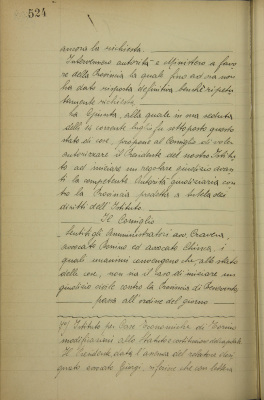 524
ancora la richiesta.
Intervennero autorità e Ministero a favo
re della Provincia la quale fino ad ora non
ha dato risposta definitiva benchè ripetu
tamente richiesta.
La Giunta, alla quale in una seduta
delli corrente luglio fu sottoposto questo
stato di cose, propone al Consiglio di voler
autorizzare il Presidente del nostro Istitu
to ad iniziare un regolare giudizio avan
ti la competente Autorità giudiziaria con
tro la Provincia predetta a tutela dei
diritti dell'Istituto.
Il Consiglio
Sentiti gli Amministratori avv. Cravero
avvocato ed avvocato i
quali unanimi convengono che allo stato
delle cose, non sia il caso di iniziare un
giudizio civile contro la Provincia di Benevento
passa all'ordine del giorno
Istituto per Case Economiche di
modificazioni allo Statuto e
Il Presidente data l'assenza del relatore Con
avvocato Giorgi, riferisce che con lettera